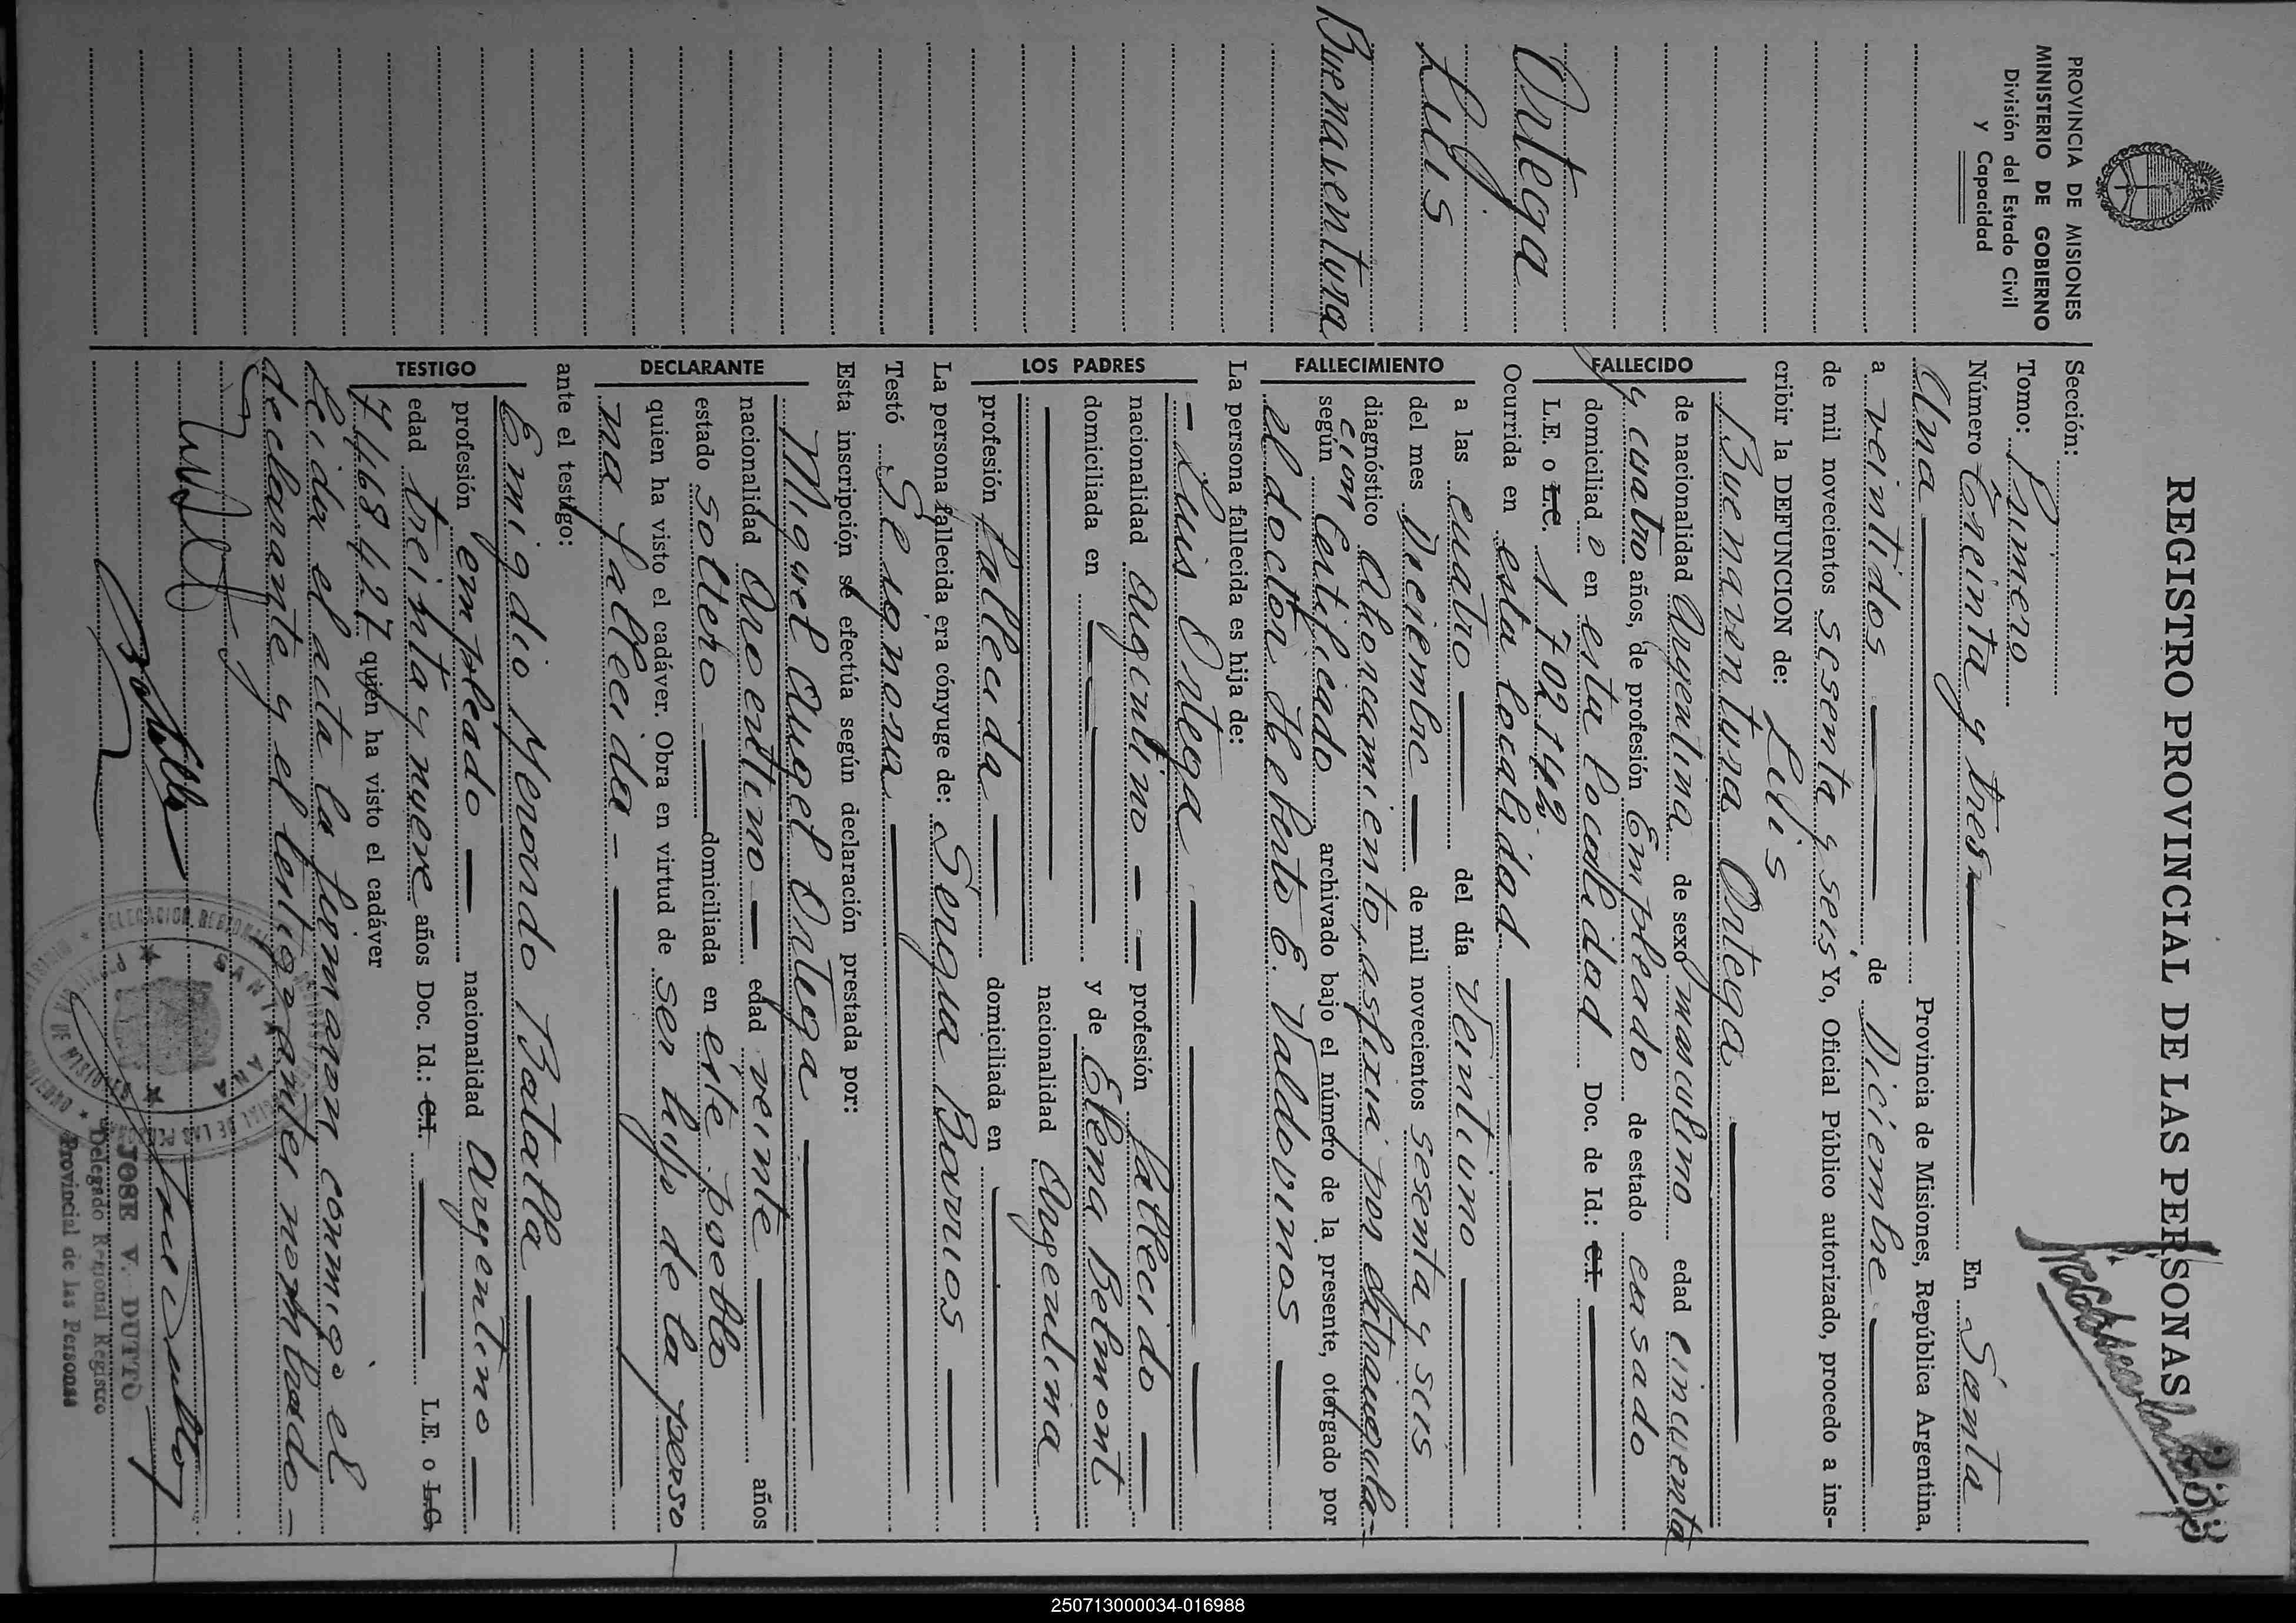 REGISTRO PROVINCIAL DE LAS PERSONAS
PROVINCIA DE MISIONES
MINISTERIO DE GOBIERNO
División del Estado Civil
Y Capacidad
Ortega
Luis
Buenaventura
Sección:
Tomo: Primero
Número Treinta y tres En Santa
Ana Provincia de Misiones, República Argentina,
a veintidos de Diciembre
de mil novecientos sesenta y seis Yo, Oficial Público autorizado, procedo a ins-
cribir la DEFUNCION de: Luis
FALLECIDO
Buenaventura Ortega
de nacionalidad Argentina de sexo masculino edad cincuenta
y cuatro años, de profesión Empleado de estado casado
domiciliad o en esta localidad Doc. de Id.: C.I.
L.E. o L.C. 1 702 142
Ocurrida en esta localidad
FALLECIMIENTO
a las cuatro del día Veintiuno
del mes Diciembre de mil novecientos sesenta y seis
diagnóstico Ahorcamiento, asfixia por estrangula-
cion
según Certificado archivado bajo el número de la presente, otorgado por
el doctor Heberto E. Valdovinos
La persona fallecida es hija de:
LOS PADRES
Luis Ortega
nacionalidad Argentino profesión fallecido
domiciliada en y de Elena Belmont
nacionalidad Argentina
profesión fallecida domiciliada en
La persona fallecida era cónyuge de: Sergia Barrios
Testó Se ignora
Esta inscripción se efectúa según declaración prestada por:
DECLARANTE
Miguel Angel Ortega
nacionalidad Argentino edad veinte años
estado soltero domiciliada en éste pueblo
quien ha visto el cadáver. Obra en virtud de ser hijo de la perso
na fallecida
ante el testigo:
TESTIGO
Emigdio Merardo Batalla
profesión empleado nacionalidad Argentino
edad treinta y nueve años Doc. Id.: C.I. L.E. o L.C.
7.468.427 quién ha visto el cadáver
Leida el acta la firmaron conmigo el
declarante y el testigo antes nombrado
JOSE V. DUTTO
Delegado Regional Registro
Provincial de las Personas
250713000034-016988